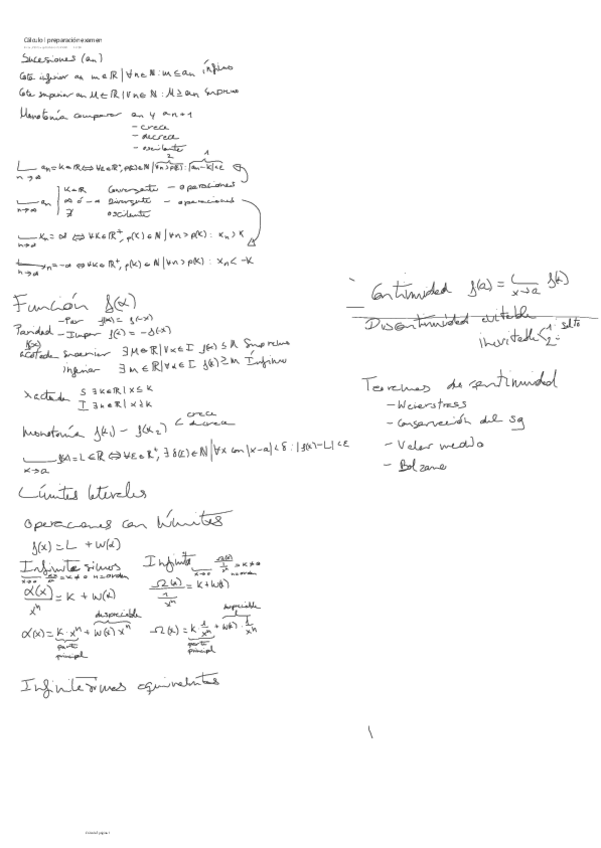 Cálculo I preparación examen
Sucesiones (an)
Cota inferior an m∈ℝ | ∀n∈ℕ: m≤an ínfimo
Cota superior an M∈ℝ | ∀n∈ℕ: M≥an Supremo
Monotonía comparar an y an+1
- crece
- decrece
- oscilante
2 1
L an=K∈ℝ ⟺ ∀ε∈ℝ⁺, p(ε)∈ℕ | ∀n>p(ε): |an-K|<ε
n→∞
L an
n→∞
K∈ℝ Convergente - operaciones
∞ ó -∞ Divergente - operaciones
∄ oscilante
L xn=∞ ⟺ ∀K∈ℝ⁺, p(K)∈ℕ | ∀n>p(K): xn>K
n→∞
L xn=-∞ ⟺ ∀K∈ℝ⁺, p(K)∈ℕ | ∀n>p(K): xn<-K
n→∞
Función f(x)
Paridad - Par f(x)=f(-x)
- Impar f(x)=-f(-x)
f(x)
acotada Superior ∃M∈ℝ | ∀x∈I f(x)≤M Supremo
Inferior ∃m∈ℝ | ∀x∈I f(x)≥m Ínfimo
x acotada S ∃k∈ℝ | x≤k
I ∃k∈ℝ | x≥k
monotonía f(x1) - f(x2) < crece
decrece
L f(x)=L∈ℝ ⟺ ∀ε∈ℝ⁺, ∃δ(ε)∈ℕ | ∀x con |x-a|<δ: |f(x)-L|<ε
x→a
Límites laterales
Operaciones con límites
f(x)=L+w(x)
Infinitésimos
α(x)/xⁿ = K + w(x)
despreciable
α(x)=K·xⁿ+w(x)xⁿ
parte
principal
Infinito
Ω(x)/(1/xⁿ) = K+w(x)
despreciable
Ω(x)=K·1/xⁿ+w(x)·1/xⁿ
parte
principal
Infinitésimos equivalentes
Continuidad f(a)= L f(x)
x→a
Discontinuidad evitable
inevitable < 1: salto
2:
Teoremas de continuidad
- Weierstress
- Conservación del sg
- Valor medio
- Bolzano